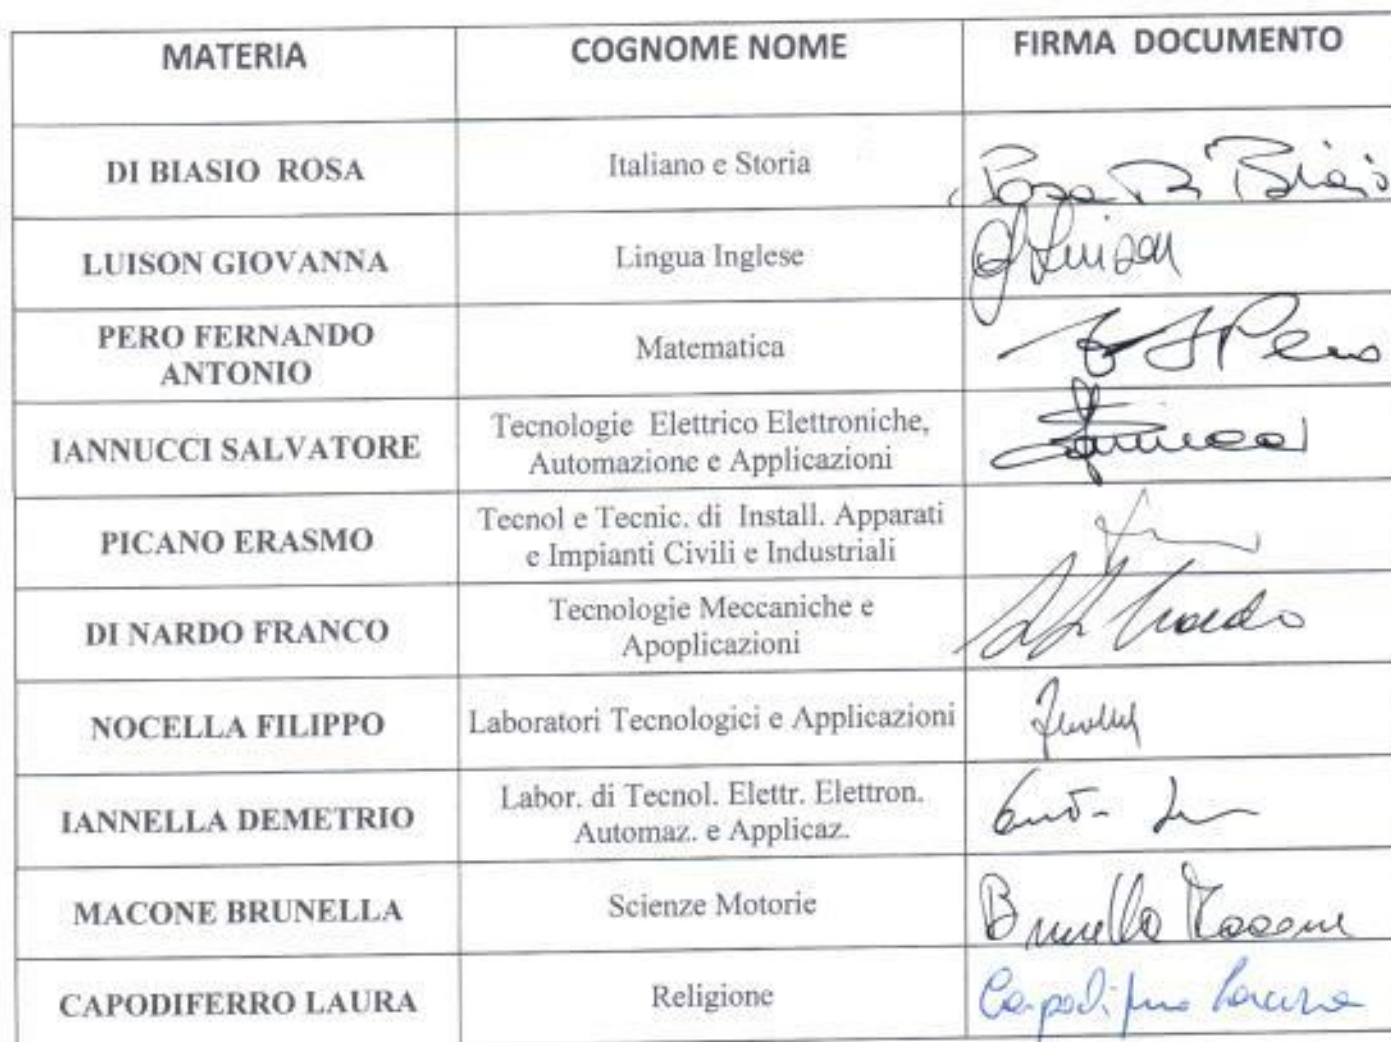 MATERIA COGNOME NOME FIRMA DOCUMENTO
DI BIASIO ROSA Italiano e Storia Rosa Di Biasio
LUISON GIOVANNA Lingua Inglese G Luison
PERO FERNANDO
ANTONIO Matematica Pero
IANNUCCI SALVATORE Tecnologie Elettrico Elettroniche,
Automazione e Applicazioni Iannucci
PICANO ERASMO Tecnol e Tecnic. di Install. Apparati
e Impianti Civili e Industriali
DI NARDO FRANCO Tecnologie Meccaniche e
Apoplicazioni Nardo
NOCELLA FILIPPO Laboratori Tecnologici e Applicazioni
IANNELLA DEMETRIO Labor. di Tecnol. Elettr. Elettron.
Automaz. e Applicaz.
MACONE BRUNELLA Scienze Motorie Brunella Macone
CAPODIFERRO LAURA Religione Capodiferro Laura